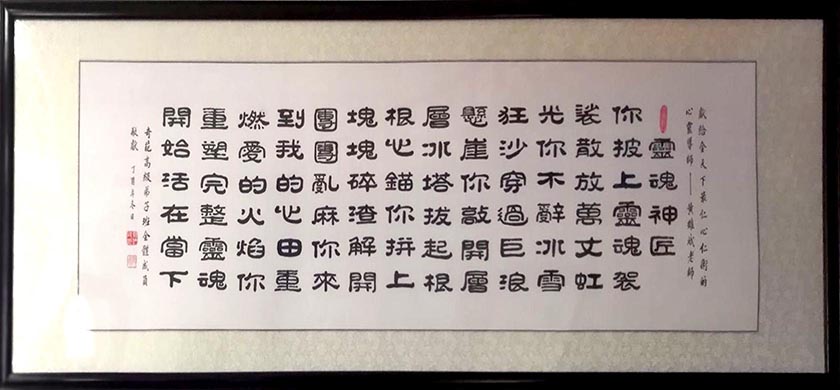 獻給全天下最仁心仁術的
心靈導師——黃雄成老師
靈魂神匠
你披上靈魂袈
裟散放萬丈虹
光你不辭冰雪
狂沙穿過巨浪
懸崖你敲開層
層冰塔拔起根
根心錨你拼上
塊塊碎渣解開
團團亂麻你來
到我的心田重
燃愛的火焰你
重塑完整靈魂
開始活在當下
奇苑高級弟子班全體成員
敬獻 丁酉年冬日